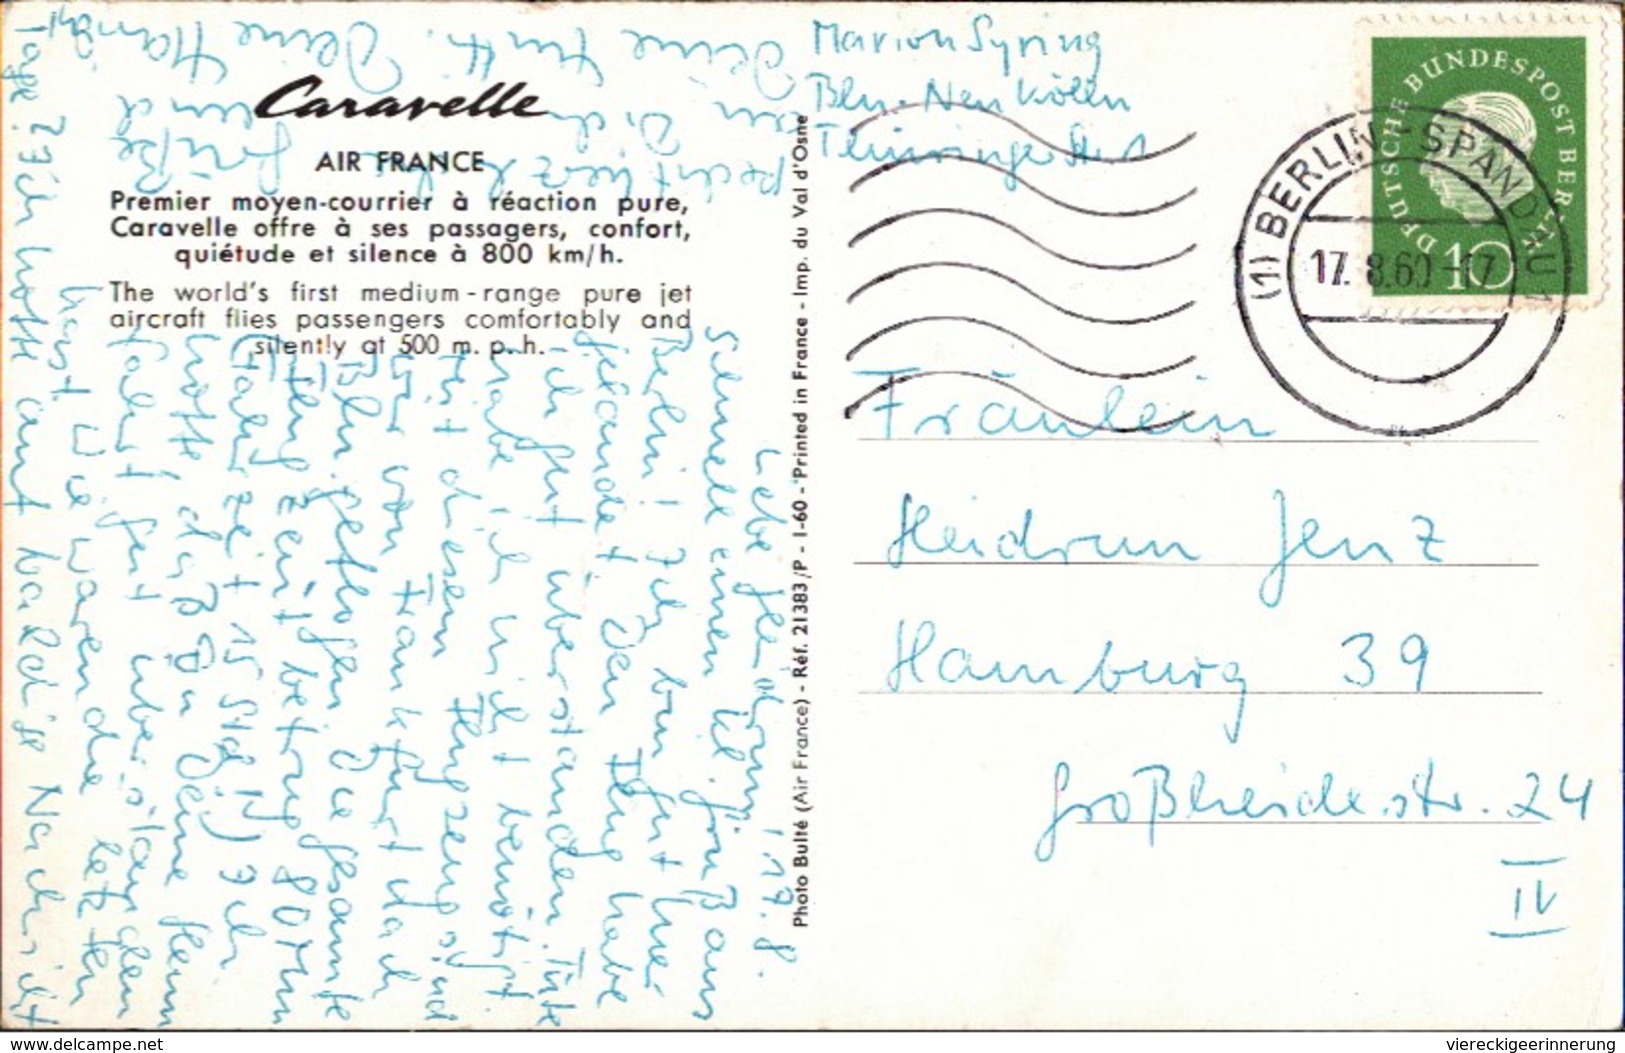 Caravelle
AIR FRANCE
Premier moyen-courrier à réaction pure,
Caravelle offre à ses passagers, confort,
quiétude et silence à 800 km/h.
The world's first medium-range pure jet
aircraft flies passengers comfortably and
silently at 500 m.p.h.
17.8.
Liebe Heidrun!
Schnell einen kl. Gruß aus
Berlin! Ich bin gut hier
gelandet. Den Flug habe
ich gut überstanden. Tüte
habe ich nicht benötigt
Mit diesem Flugzeug sind
wir von Frankfurt nach
Bln. geflogen. Die gesamte
Flugzeit betrug 80 Min
15 Std!!) Ich
hoffe daß Du Deine
fahrt gut überstanden
hast. Wie waren die letzten
Tage? Ich hoffe auf bald'ge Nachricht
recht herzliche Grüße
und
Deine
Photo Bulté (Air France) - Réf. 21383/P - 1-60 - Printed in France - Imp. du Val d'Osne
Marion Syring
Bln-Neukölln
Thüringer Str
DEUTSCHE BUNDESPOST BERLIN
10
(1) BERLIN-SPANDAU 1
17.8.60-17
Fräulein
Heidrun Jenz
Hamburg 39
Großheidestr. 24
IV
www.delcampe.net
viereckigeerinnerung